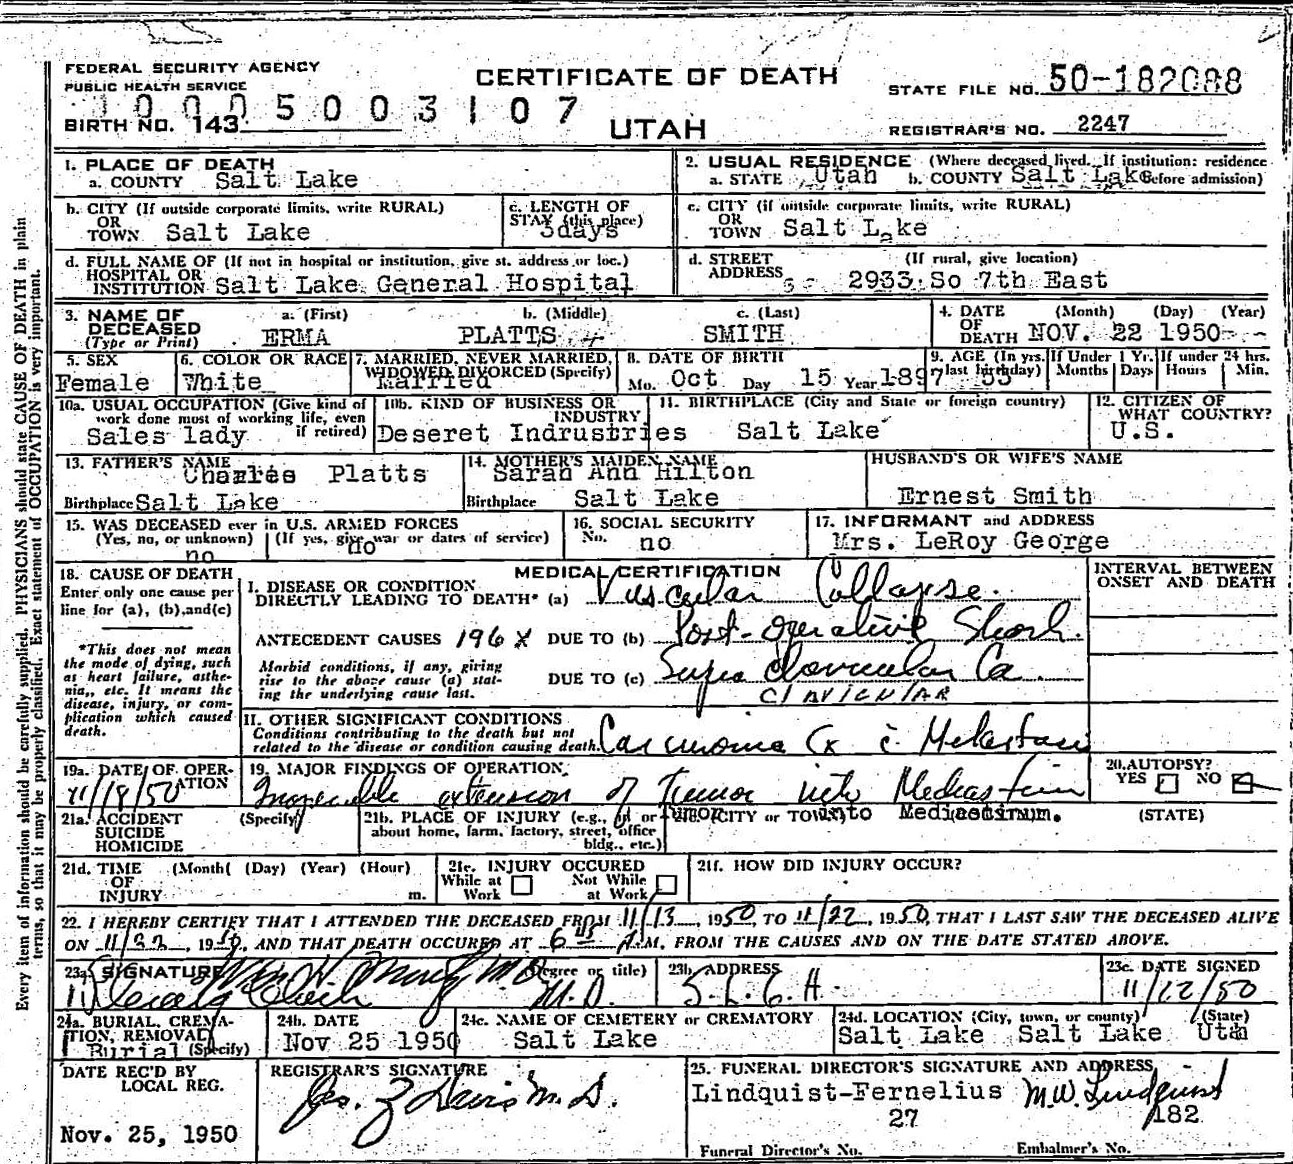 FEDERAL SECURITY AGENCY
PUBLIC HEALTH SERVICE
CERTIFICATE OF DEATH
STATE FILE NO. 50-182088
1 0 0 0 5 0 0 3 1 0 7
BIRTH NO. 143
UTAH
REGISTRAR'S NO. 2247
1. PLACE OF DEATH
a. COUNTY Salt Lake
2. USUAL RESIDENCE (Where deceased lived. If institution: residence
a. STATE Utah b. COUNTY Salt Lake before admission)
b. CITY (If outside corporate limits, write RURAL)
OR
TOWN Salt Lake
c. LENGTH OF
STAY (this place)
3days
c. CITY (if outside corporate limits, write RURAL)
OR
TOWN Salt Lake
d. FULL NAME OF (If not in hospital or institution, give st. address or loc.)
HOSPITAL OR
INSTITUTION Salt Lake General Hospital
d. STREET (If rural, give location)
ADDRESS 2933 So 7th East
3. NAME OF DECEASED
(Type or Print)
a. (First) b. (Middle) c. (Last)
ERMA PLATTS SMITH
4. DATE OF DEATH (Month) (Day) (Year)
NOV. 22 1950
5. SEX
Female
6. COLOR OR RACE
White
7. MARRIED, NEVER MARRIED,
WIDOWED, DIVORCED (Specify)
Married
8. DATE OF BIRTH
Mo. Oct Day 15 Year 1897
9. AGE (In yrs. last birthday) 53
If Under 1 Yr. Months Days
If under 24 hrs. Hours Min.
10a. USUAL OCCUPATION (Give kind of
work done most of working life, even
if retired)
Sales lady
10b. KIND OF BUSINESS OR
INDUSTRY
Deseret Indrustries
11. BIRTHPLACE (City and State or foreign country)
Salt Lake
12. CITIZEN OF
WHAT COUNTRY?
U.S.
13. FATHER'S NAME
Charles Platts
Birthplace Salt Lake
14. MOTHER'S MAIDEN NAME
Sarah Ann Hilton
Birthplace Salt Lake
HUSBAND'S OR WIFE'S NAME
Ernest Smith
15. WAS DECEASED ever in U.S. ARMED FORCES
(Yes, no, or unknown) (If yes, give war or dates of service)
no no
16. SOCIAL SECURITY
No. no
17. INFORMANT and ADDRESS
Mrs. LeRoy George
18. CAUSE OF DEATH
Enter only one cause per
line for (a), (b),and(c)
*This does not mean
the mode of dying, such
as heart failure, asthe-
nia,, etc. It means the
disease, injury, or com-
plication which caused
death.
MEDICAL CERTIFICATION
I. DISEASE OR CONDITION
DIRECTLY LEADING TO DEATH* (a) Vascular Collapse.
ANTECEDENT CAUSES 196 X DUE TO (b) Post-operative Shock.
Morbid conditions, if any, giving
rise to the above cause (a) stat-
ing the underlying cause last.
DUE TO (c) Supra clavicular Ca.
CLAVICULAR
II. OTHER SIGNIFICANT CONDITIONS
Conditions contributing to the death but not
related to the disease or condition causing death.
Carcinoma Cx c̄ Metastases
INTERVAL BETWEEN
ONSET AND DEATH
19a. DATE OF OPER-
ATION
11/18/50
19. MAJOR FINDINGS OF OPERATION
Inoperable extension of Tumor into Mediastinum
Tumor into Mediastinum.
20. AUTOPSY?
YES NO
21a. ACCIDENT (Specify)
SUICIDE
HOMICIDE
21b. PLACE OF INJURY (e.g., in or
about home, farm, factory, street, office
bldg., etc.)
21c. (CITY or TOWN) (STATE)
21d. TIME (Month( (Day) (Year) (Hour)
OF
INJURY m.
21e. INJURY OCCURED
While at Work Not While at Work
21f. HOW DID INJURY OCCUR?
22. I HEREBY CERTIFY THAT I ATTENDED THE DECEASED FROM 11/13, 1950, TO 11/22, 1950, THAT I LAST SAW THE DECEASED ALIVE
ON 11/22, 1950, AND THAT DEATH OCCURED AT 6 A.M., FROM THE CAUSES AND ON THE DATE STATED ABOVE.
23a. SIGNATURE (Degree or title)
M.D.
M.D.
23b. ADDRESS
S.L.G.H.
23c. DATE SIGNED
11/22/50
24a. BURIAL, CREMA-
TION, REMOVAL
(Specify)
Burial
24b. DATE
Nov 25 1950
24c. NAME OF CEMETERY or CREMATORY
Salt Lake
24d. LOCATION (City, town, or county) (State)
Salt Lake Salt Lake Utah
DATE REC'D BY
LOCAL REG.
Nov. 25, 1950
REGISTRAR'S SIGNATURE
Jas. Z Davis M.D.
25. FUNERAL DIRECTOR'S SIGNATURE AND ADDRESS
Lindquist-Fernelius M.W. Lindquist
27 182
Funeral Director's No. Embalmer's No.
Every item of information should be carefully supplied. PHYSICIANS should state CAUSE OF DEATH in plain
terms, so that it may be properly classified. Exact statement of OCCUPATION is very important.